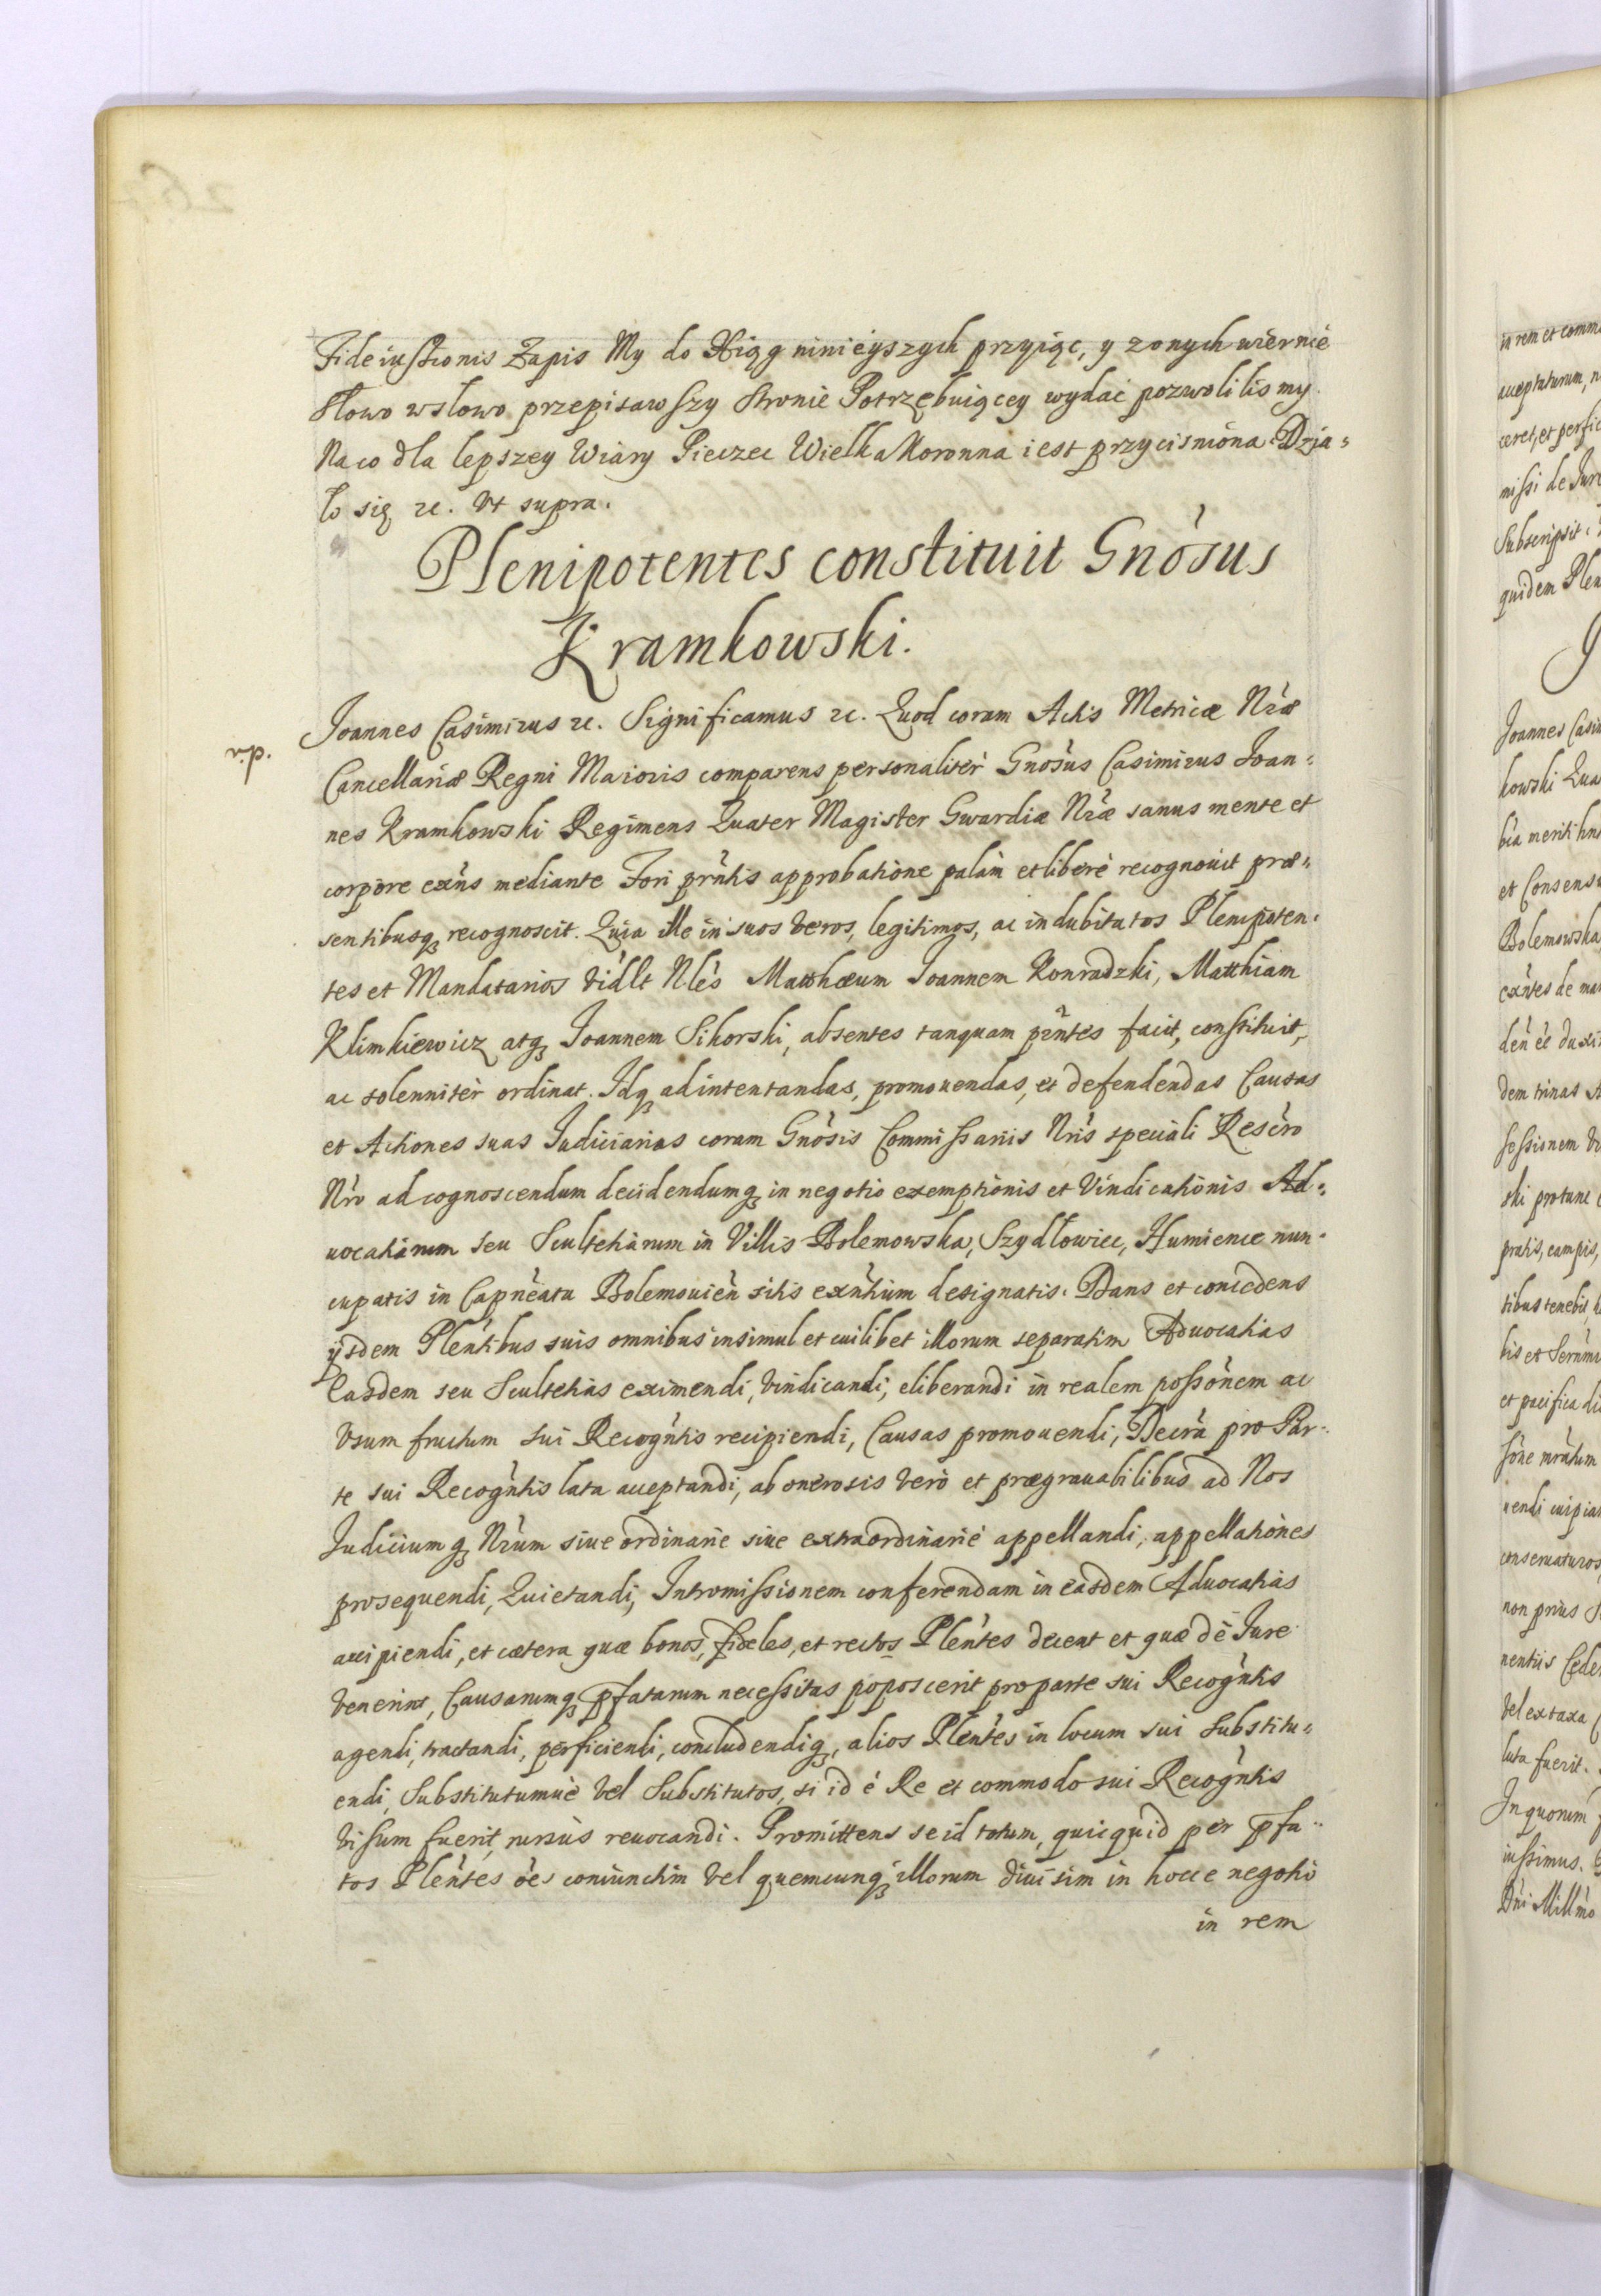 Fideiussionis Zapis My do Xiąg ninieyszych przyiąc, y zonych wiernie
Słowo wslowo przepisawszy stronie Potrzębuiącey wydać pozwolilismy
Naco dla lepszey Wiary Pieczec Wielka Koronna iest przycisniona. Dzia=
ło się etc. Vt supra.
Plenipotentes constituit Gnosus
Kramkowski.
Joannes Casimirus etc. Significamus etc. Quod coram Actis Metricæ Nræ
Cancellariæ Regni Maioris comparens personaliter Gnosus Casimirus Joan=
nes Kramkowski Regimens Quater Magister Gwardiæ Nræ sanus mente et
corpore exns mediante Fori prntis approbatione palam et libere recognouit præ=
sentibusq recognoscit. Quia ille in suos veros, legitimos, ac indubitatos Plenipoten=
tes et Mandatarios vidlt Nles Matthæum Joannem Konradzki, Matthiam
Klimkiewicz atq Joannem Sikorski, absentes tanquam pntes facit, constituit,
ac solenniter ordinat. Idq ad intentandas, promouendas, et defendendas Causas
et Actiones suas Judiciarias coram Gnosis Commissariis Nris speciali Rescro
Nro ad cognoscendum decidendumq in negotio exemptionis et Vindicationis Ad=
uocatiarum seu Scultetiarum in Villis Bolemowska, Szydłowiec, Humience nun=
cupatis in Capneatu Bolemouien sitis exntium designatis. Dans et concedens
ijsdem Plentibus suis omnibus insimul et cuilibet illorum separatim Aduocatias
Easdem seu Scultetias eximendi, vindicandi, eliberandi in realem possonem ac
Vsum fructum sui Recogntis recipiendi, Causas promouendi, Decra pro Par=
te sui Recogntis lata acceptandi, ab onerosis vero et prægrauabilibus ad Nos
Judiciumq Nrum siue ordinarie siue extraordinarie appellandi, appellationes
prosequendi, Quietandi, Intromissionem conferendam in easdem Aduocatias
accipiendi, et cætera quæ bonos, fideles, et rectos Plentes decent et quæ de Jure
venerint, Causarumq pfatarum necessitas poposcerit pro parte sui Recogntis
agendi, tractandi, perficiendi, concludendiq, alios Plentes in locum sui Substitu=
endi, Substitutumue vel Substitutos, si id è Re et commodo sui Recogntis
visum fuerit, rursus reuocandi. Promittens se id totum, quicquid per pfa=
tos Plentes oes coniunctim vel quemcunq illorum diuisim in hocce negotio
in rem